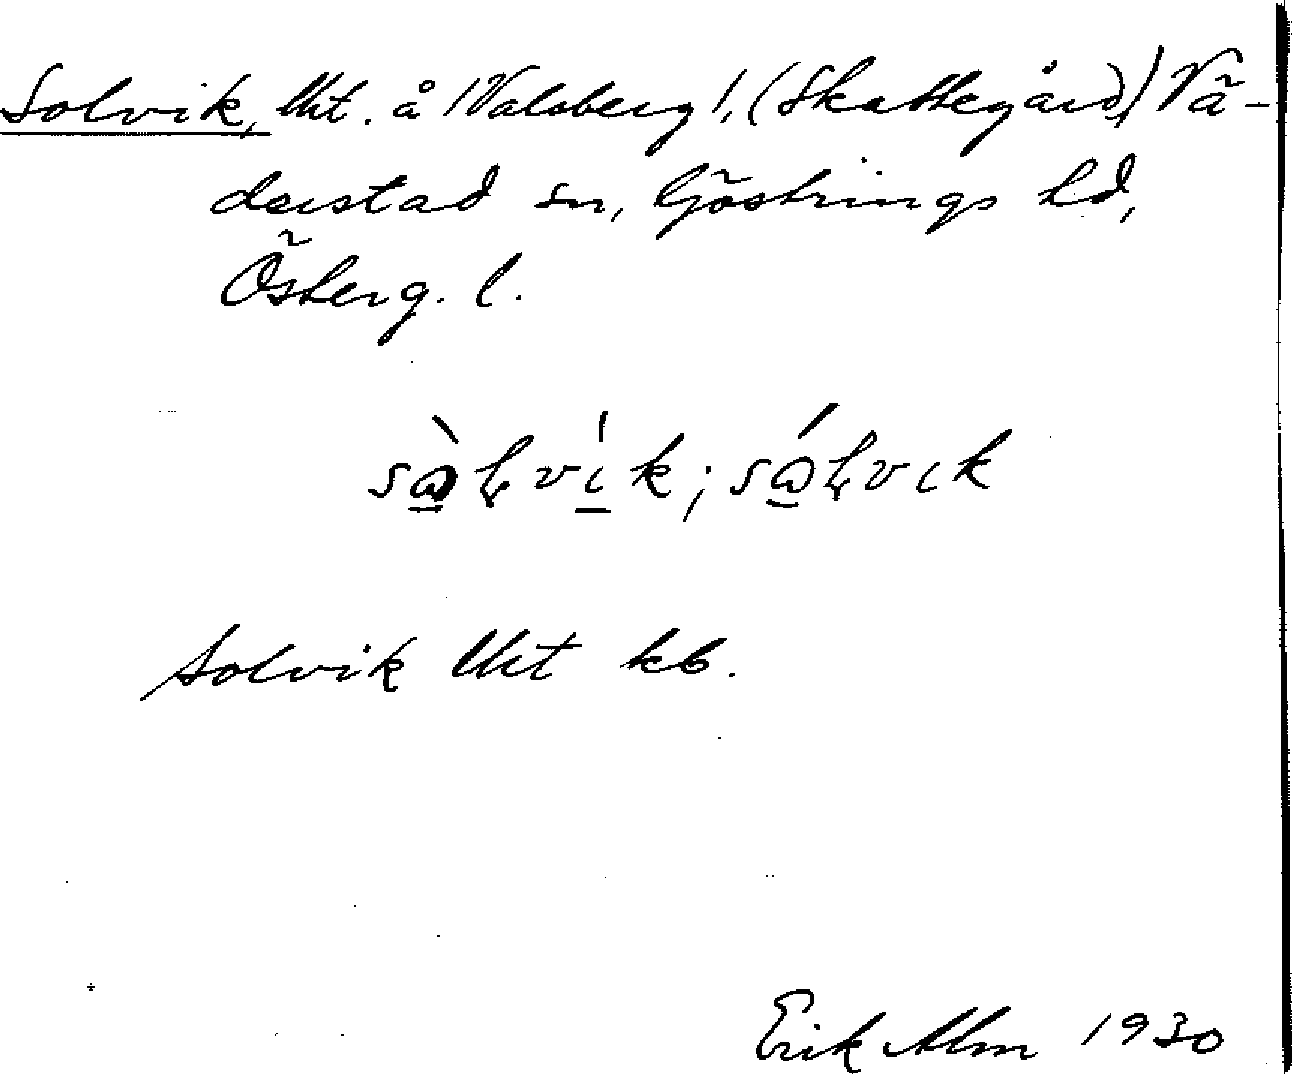 Solvik, lht. å 1 Valsberg 1, (Skattegård) Vä-
derstad sn, Göstrings hd,
Österg. l.
sàlvik; sálvık
Solvik lht kb.
Erik Alm 1930